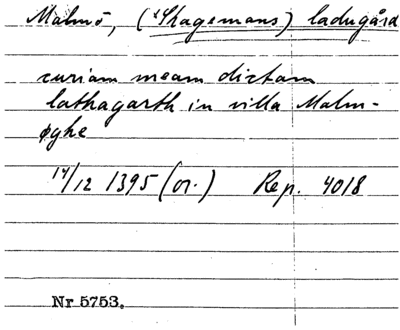 Malmö, (Skagemans) ladugård
curiam meam dictam
lathagarth in villa Malm-
øghe
14/12 1395 (or.) Rep. 4018
Nr 5753.